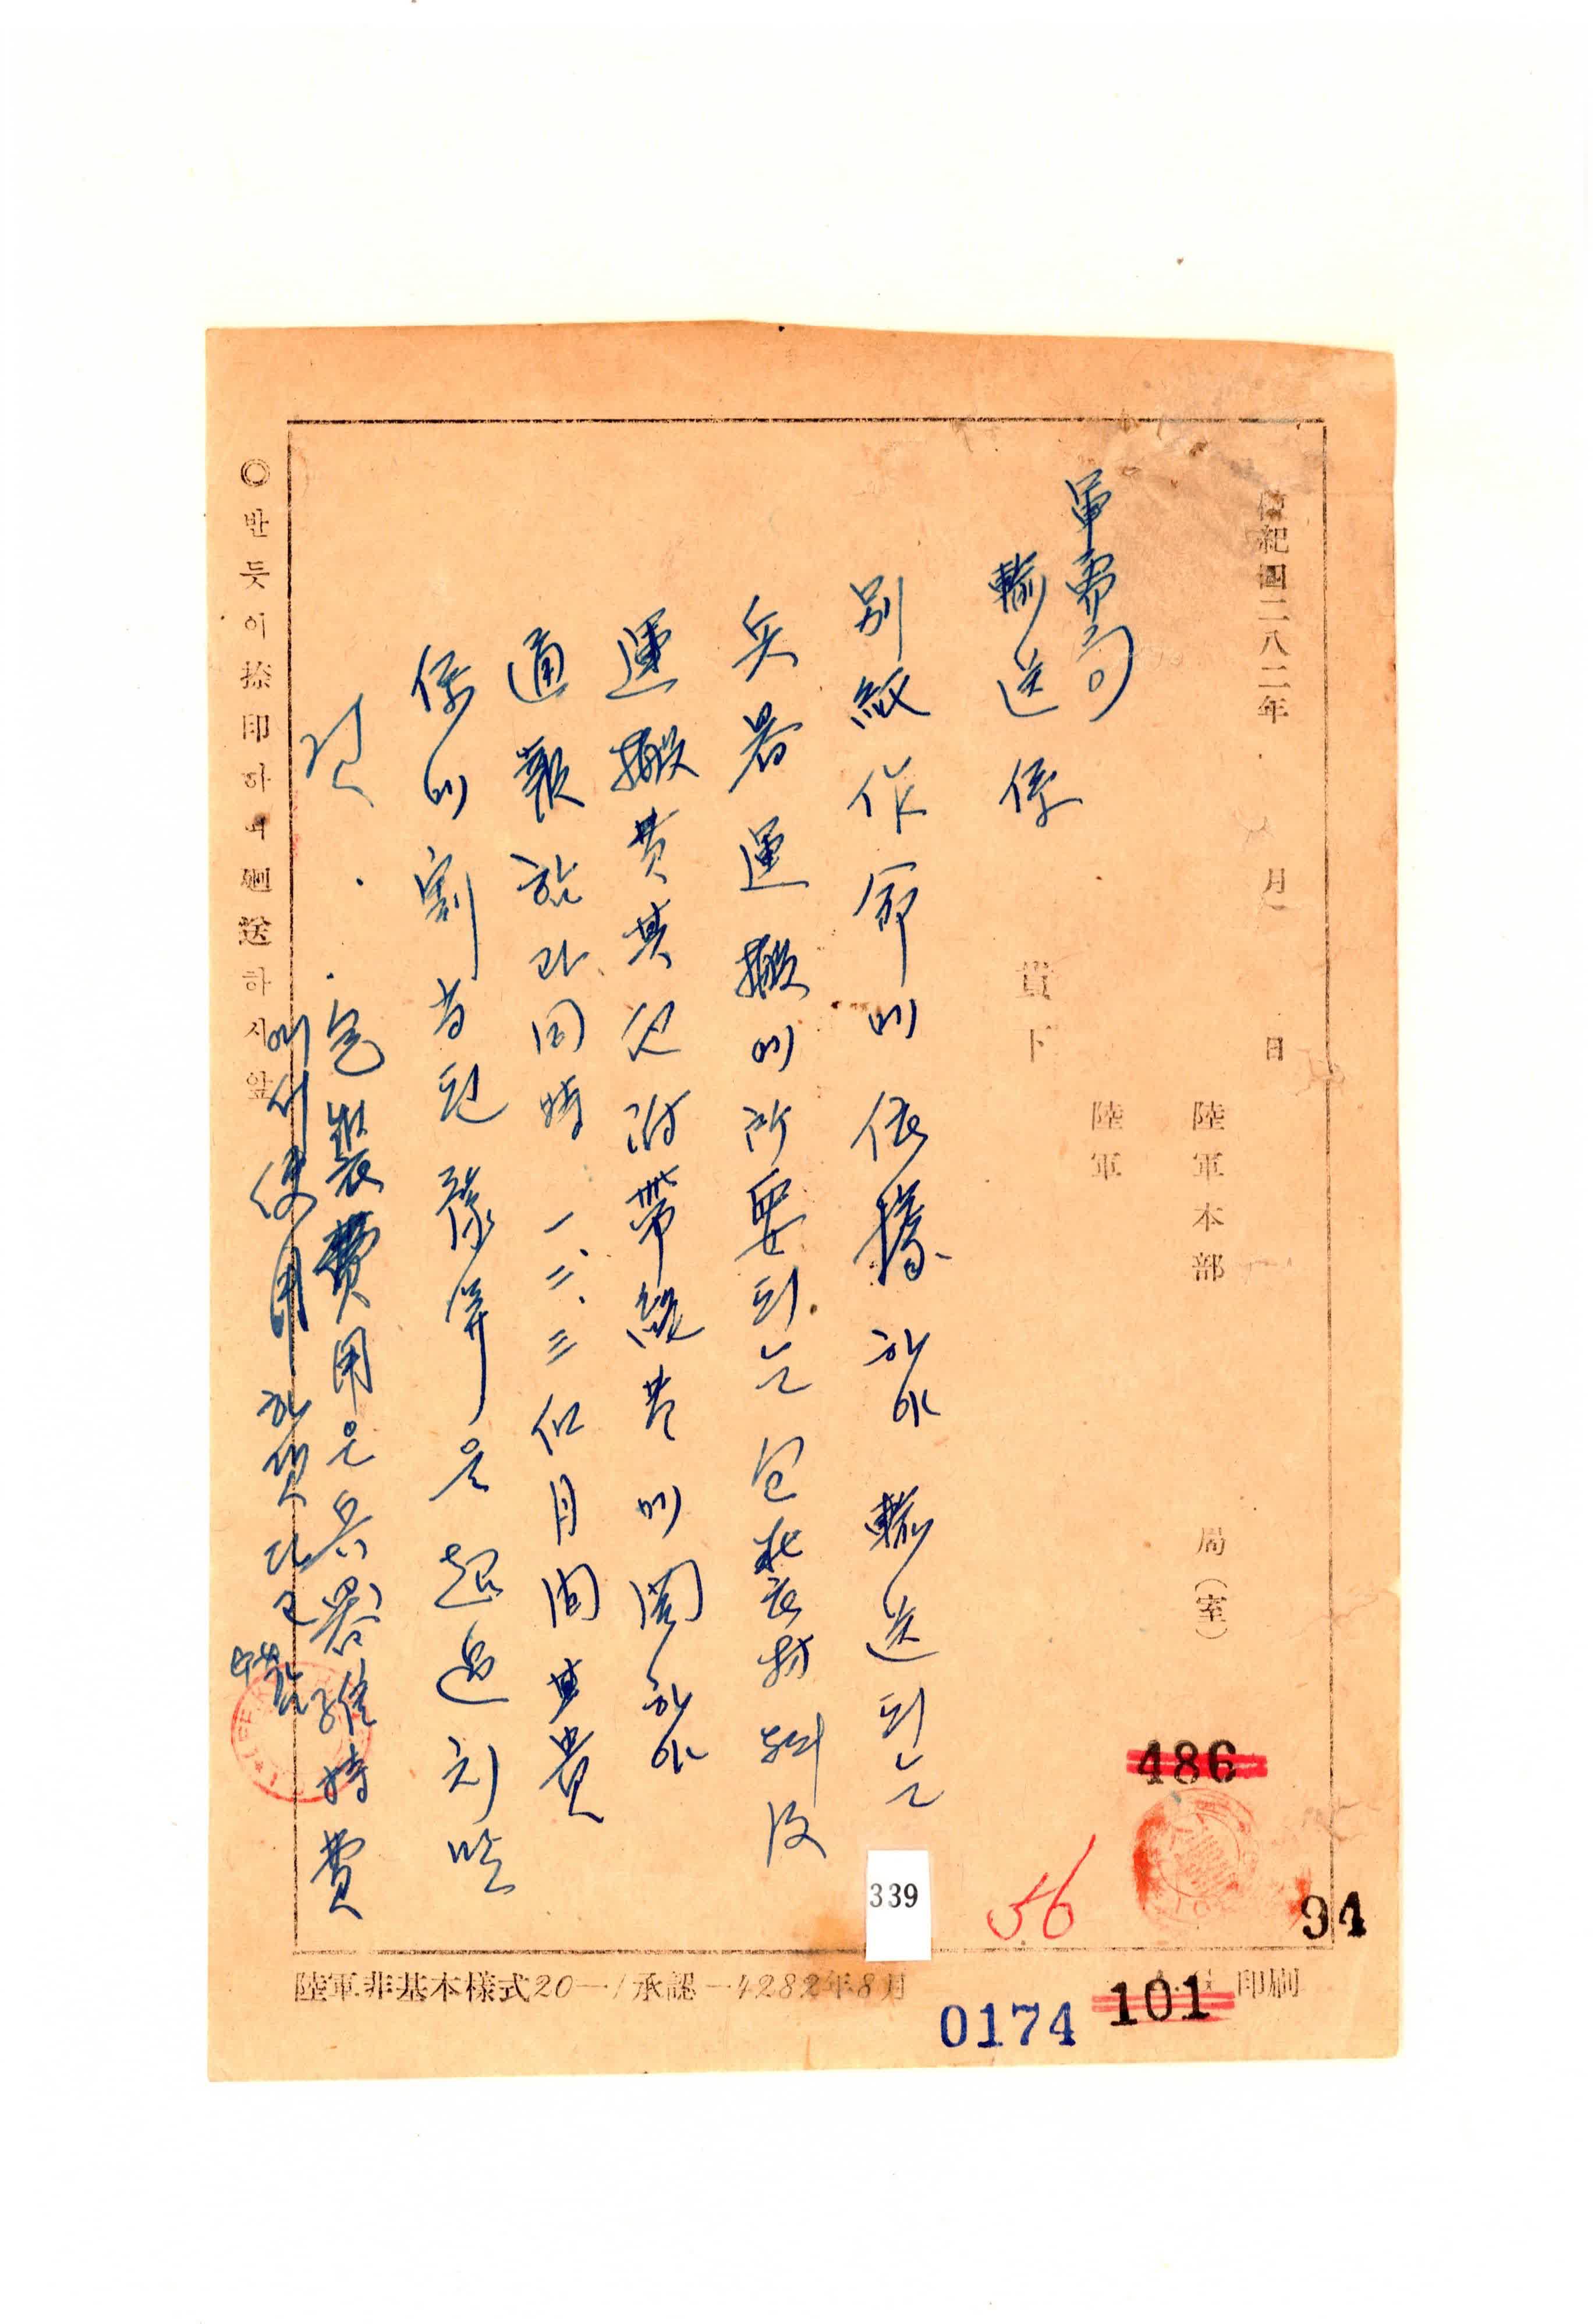 檀紀四二八二年 月 日
陸軍本部 局(室)
陸軍
貴下
軍需局
輸送係
別紙作命에 依據하야 輸送되는
兵器 運搬에 所要되는 包裝材料 及
運搬費 其他 附帶經費에 關하야
通報하는 과 同時 一、二、三 個月間 其 貴
係에 割當된 豫算은 超過치 말
것.
包裝費用은 兵器維持費
에서 使用하겟다고
◎반듯이 捺印하여 廻送하시압
陸軍非基本樣式20—1承認—4282年8月
印刷
486
339
56
94
101
0174